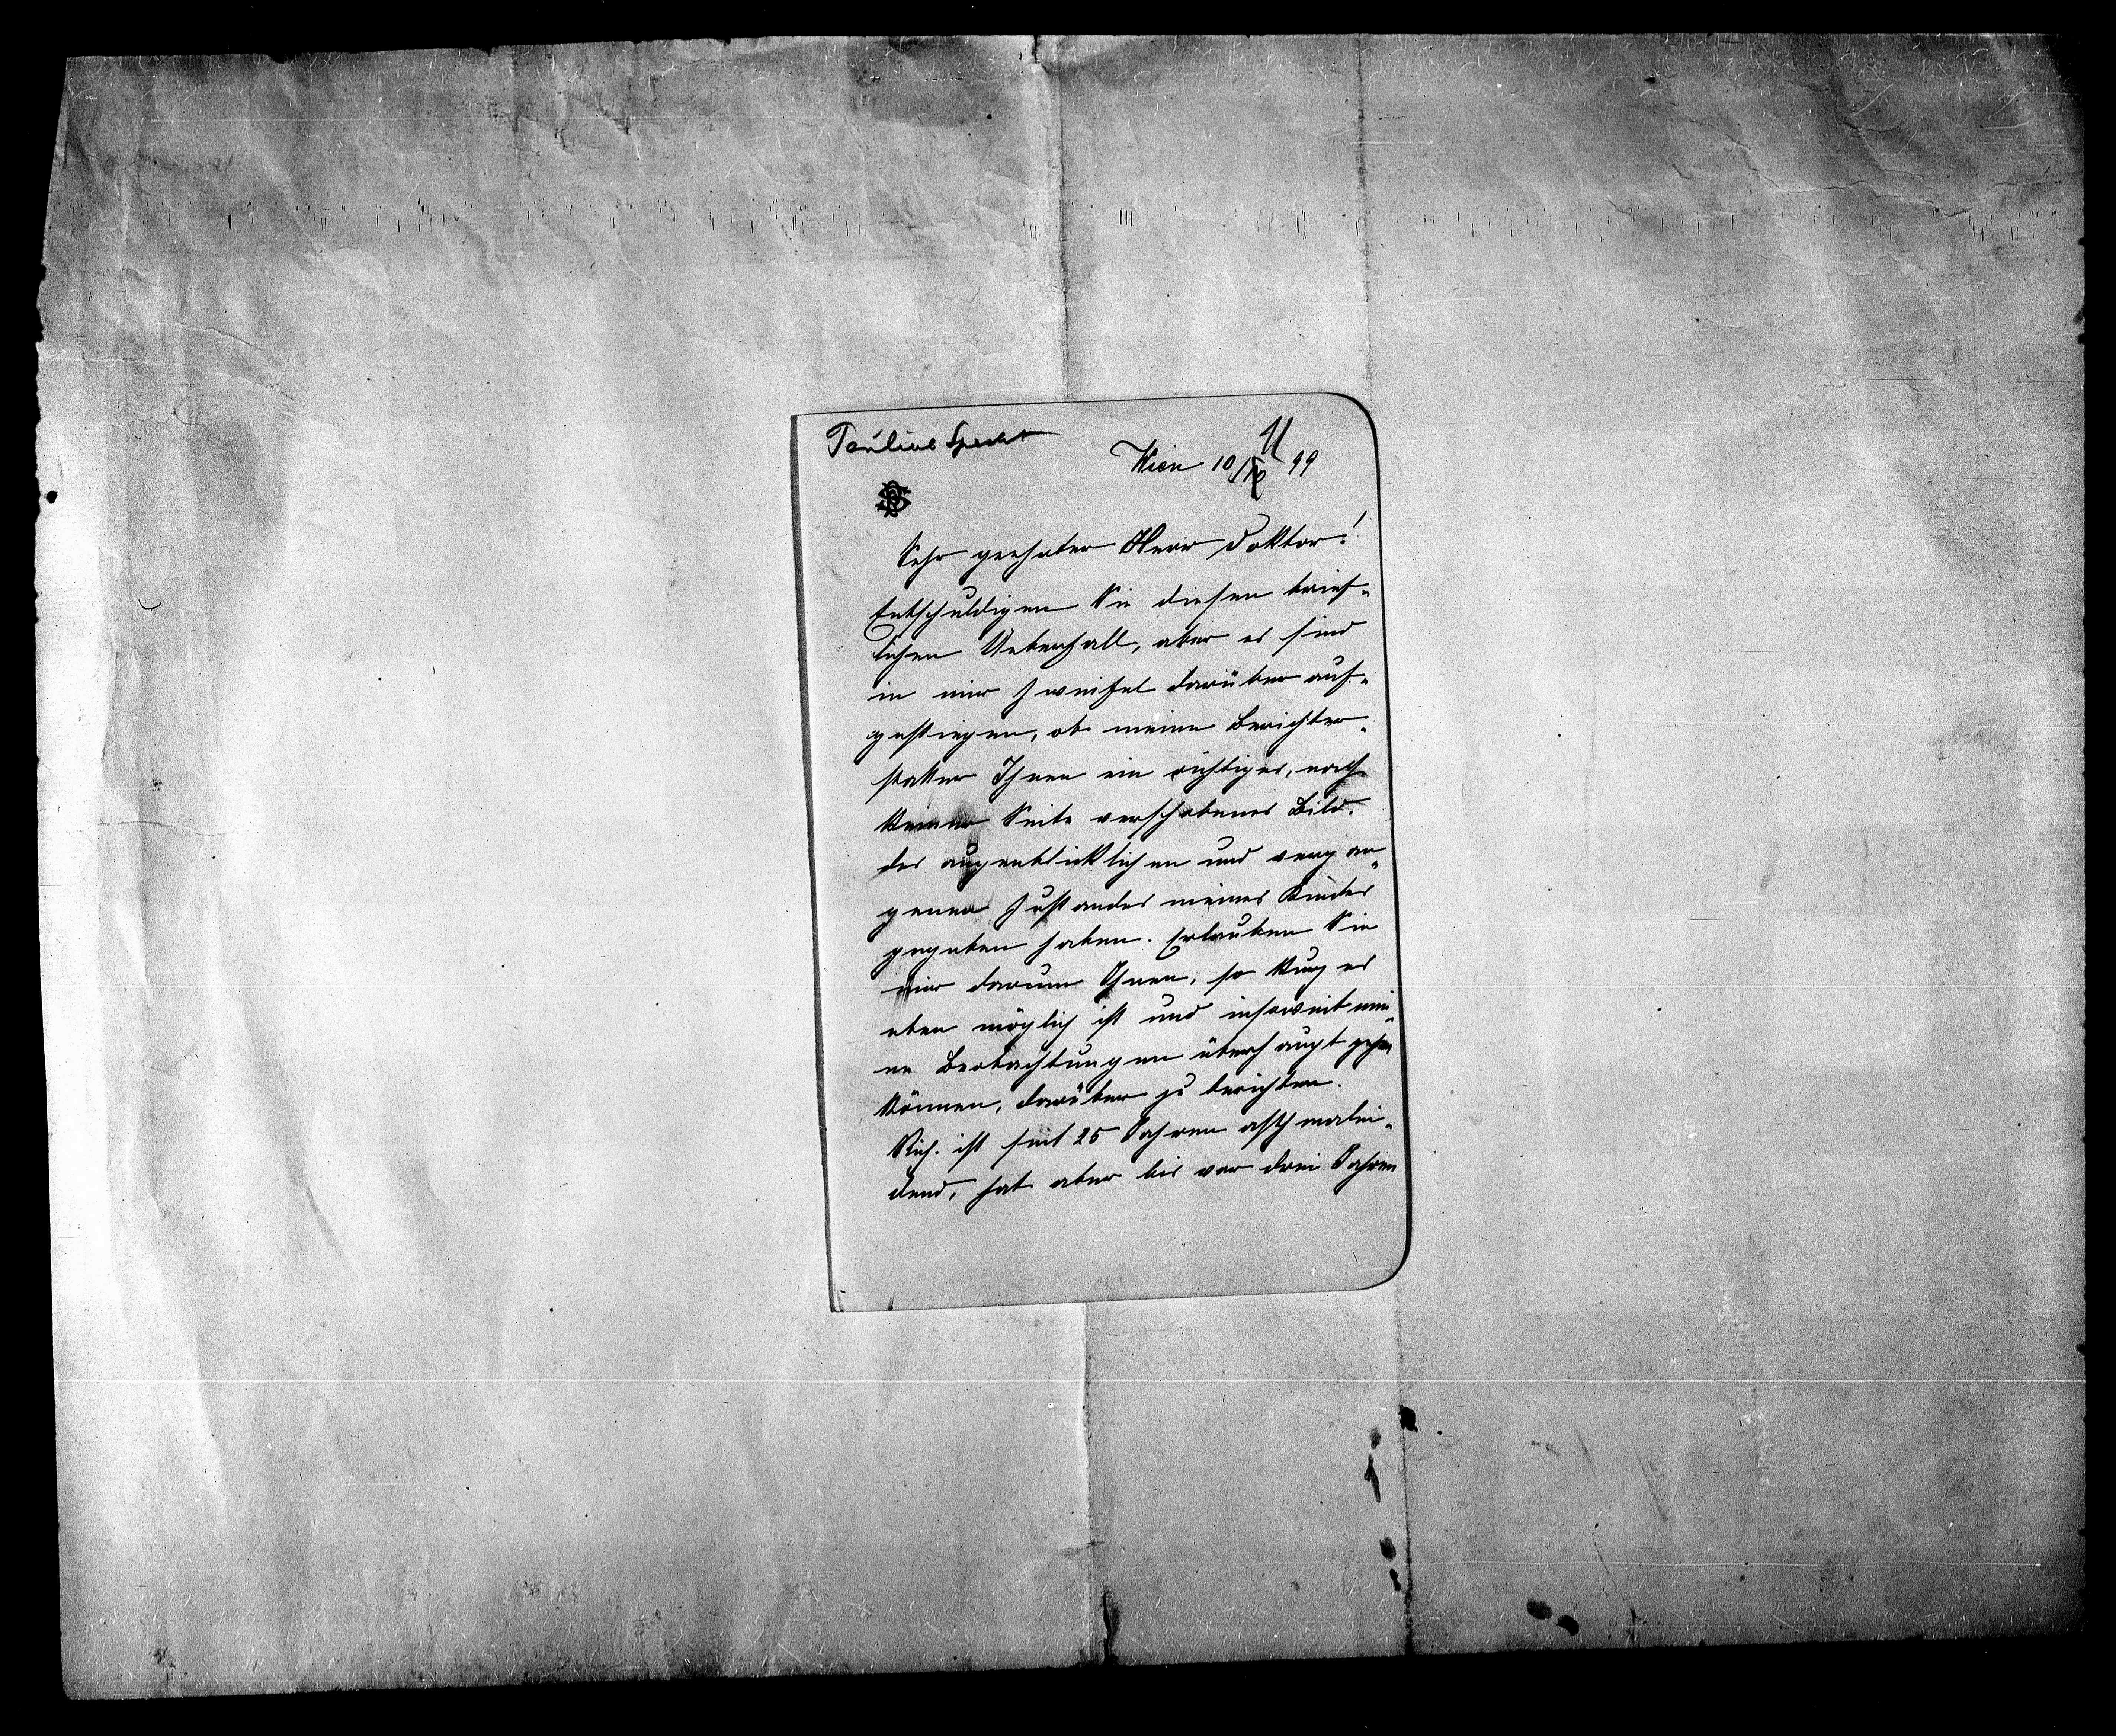 Pauline Specht
Wien 10/XI 99
Sehr geehrter Herr Doktor!
Entschuldigen Sie diesen brief-
lichen Ueberfall, aber es sind
in mir Zweifel darüber auf-
gestiegen, ob meine Berichter-
statter Ihnen ein richtiges, nach
keiner Seite verschobenes Bild
des augenblicklichen und vergan-
genen Zustandes meines Kindes
gegeben haben. Erlauben Sie
mir darum Ihnen, so kurz es
eben möglich ist und insoweit mei-
ne Beobachtungen überhaupt gehen
können, darüber zu berichten.
Rich. ist seit 25 Jahren asthmalei-
dend, hat aber bis vor drei Jahren